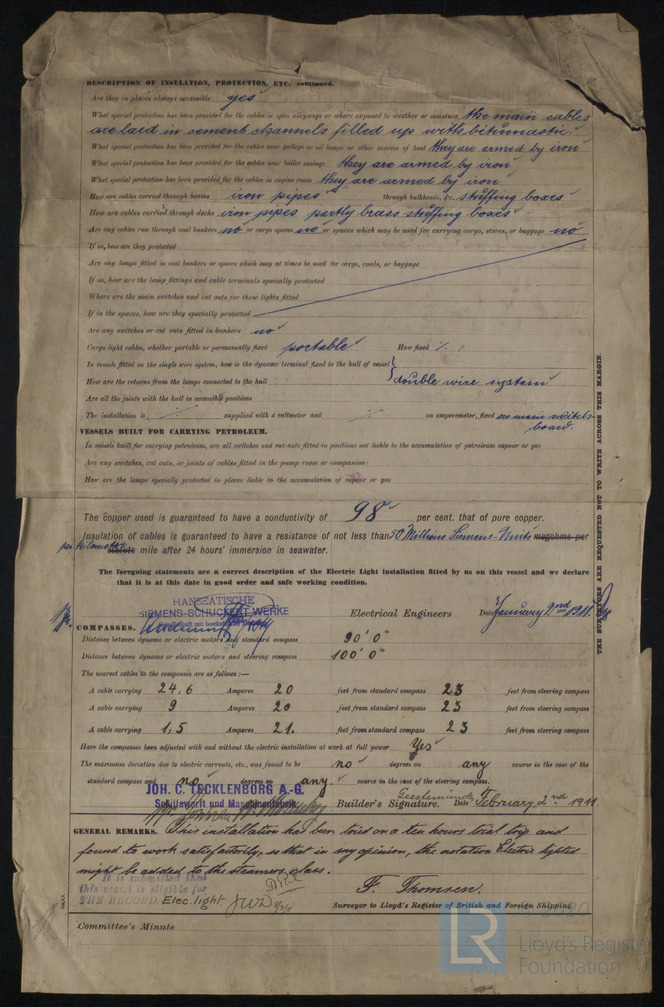 DESCRIPTION OF INSULATION, PROTECTION, ETC. continued.
Are they in places always accessible yes
What special protection has been provided for the cables in open alleyways or where exposed to weather or moisture the main cables
are laid in cement channels filled up with bitumastic.
What special protection has been provided for the cables near galleys or oil lamps or other sources of heat they are armed by iron
What special protection has been provided for the cables near boiler casings they are armed by iron
What special protection has been provided for the cables in engine room they are armed by iron
How are cables carried through beams iron pipes through bulkheads, &c. stuffing boxes
How are cables carried through decks iron pipes partly brass stuffing boxes
Are any cables run through coal bunkers no or cargo spaces no or spaces which may be used for carrying cargo, stores, or baggage no
If so, how are they protected
Are any lamps fitted in coal bunkers or spaces which may at times be used for cargo, coals, or baggage
If so, how are the lamp fittings and cable terminals specially protected
Where are the main switches and cut outs for these lights fitted
If in the spaces, how are they specially protected
Are any switches or cut outs fitted in bunkers no
Cargo light cables, whether portable or permanently fixed portable How fixed
In vessels fitted on the single wire system, how is the dynamo terminal fixed to the hull of vessel
How are the returns from the lamps connected to the hull double wire system
Are all the joints with the hull in accessible positions
The installation is supplied with a voltmeter and an amperemeter, fixed on main switch-
board.
VESSELS BUILT FOR CARRYING PETROLEUM.
In vessels built for carrying petroleum, are all switches and cut-outs fitted in positions not liable to the accumulation of petroleum vapour or gas
Are any switches, cut outs, or joints of cables fitted in the pump room or companion
How are the lamps specially protected in places liable to the accumulation of vapour or gas
The copper used is guaranteed to have a conductivity of 98 per cent. that of pure copper.
Insulation of cables is guaranteed to have a resistance of not less than 50 Millions Siemens-Units megohms per
per kilometer statute mile after 24 hours' immersion in seawater.
The foregoing statements are a correct description of the Electric Light installation fitted by us on this vessel and we declare
that it is at this date in good order and safe working condition.
HANSEATISCHE
SIEMENS-SCHUCKERT WERKE
Electrical Engineers Date January 2nd 1911
COMPASSES.
Distance between dynamo or electric motors and standard compass 90' 0"
Distance between dynamo or electric motors and steering compass 100' 0"
The nearest cables to the compasses are as follows:—
A cable carrying 24,6 Amperes 20 feet from standard compass 23 feet from steering compass
A cable carrying 9 Amperes 20 feet from standard compass 23 feet from steering compass
A cable carrying 1,5 Amperes 21. feet from standard compass 23 feet from steering compass
Have the compasses been adjusted with and without the electric installation at work at full power Yes
The maximum deviation due to electric currents, etc., was found to be no degrees on any course in the case of the
standard compass and no degrees on any. course in the case of the steering compass.
JOH. C. TECKLENBORG A.-G.
Schiffswerft und Maschinenfabrik
Builder's Signature. Date Geestemünde February 2nd 1911
GENERAL REMARKS. This installation has been tried on a ten hours trial trip and
found to work satisfactorily, so that in my opinion, the notation Electric lighted
might be added to the steamers class.
It is submitted that
this vessel is eligible for
THE RECORD. Elec. light JWD
F. Thomsen.
Surveyor to Lloyd's Register of British and Foreign Shipping.
Committee's Minute
THE SURVEYORS ARE REQUESTED NOT TO WRITE ACROSS THIS MARGIN.
LR
© 2020
Lloyd's Register
Foundation